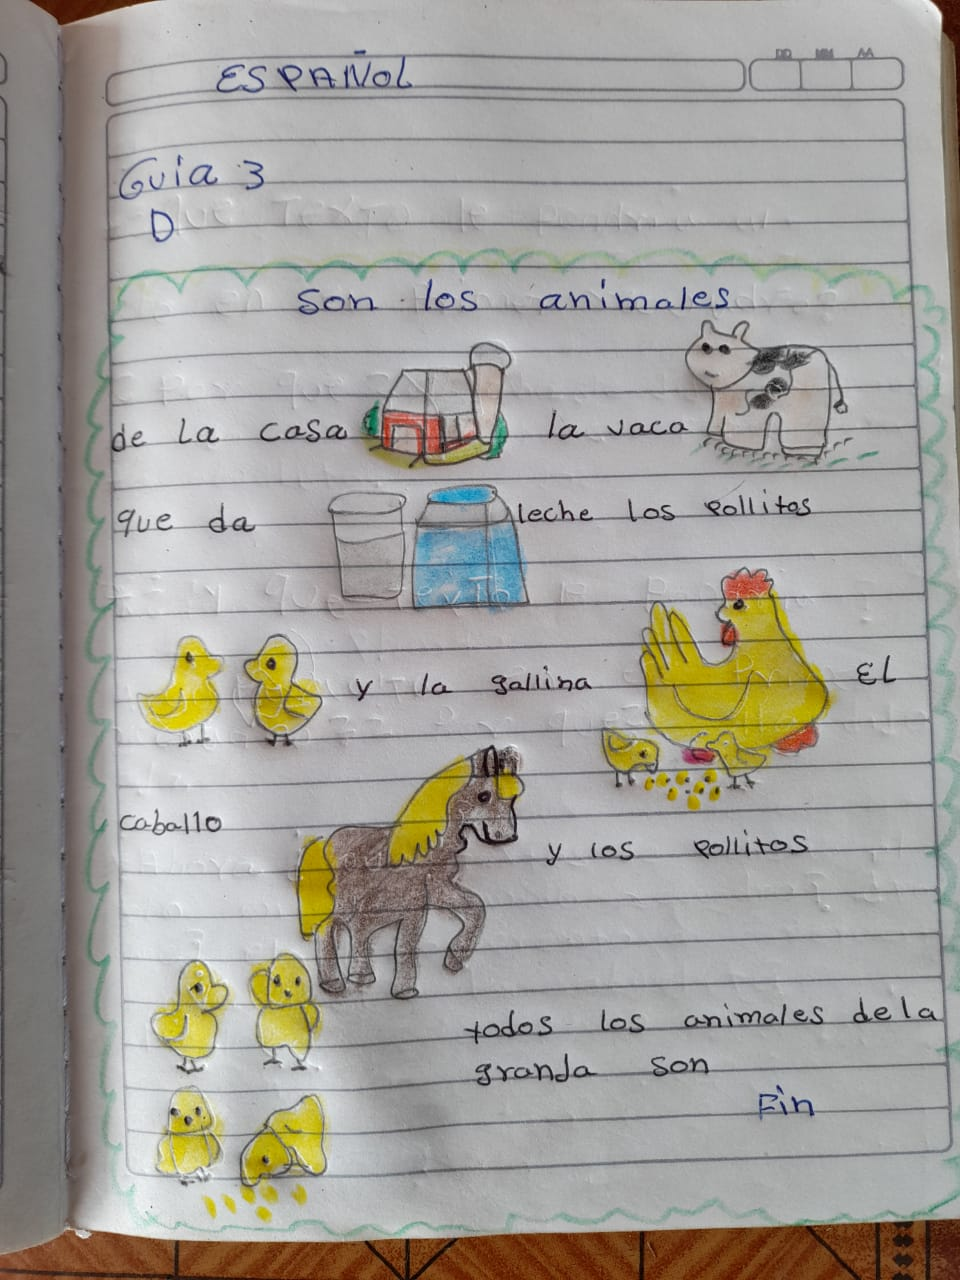 DD MM AA
ESPAÑOL
Guia 3
D
Son los animales
de la casa la vaca
que da leche los pollitos
y la gallina EL
caballo
y los pollitos
todos los animales de la
granda son
Fin